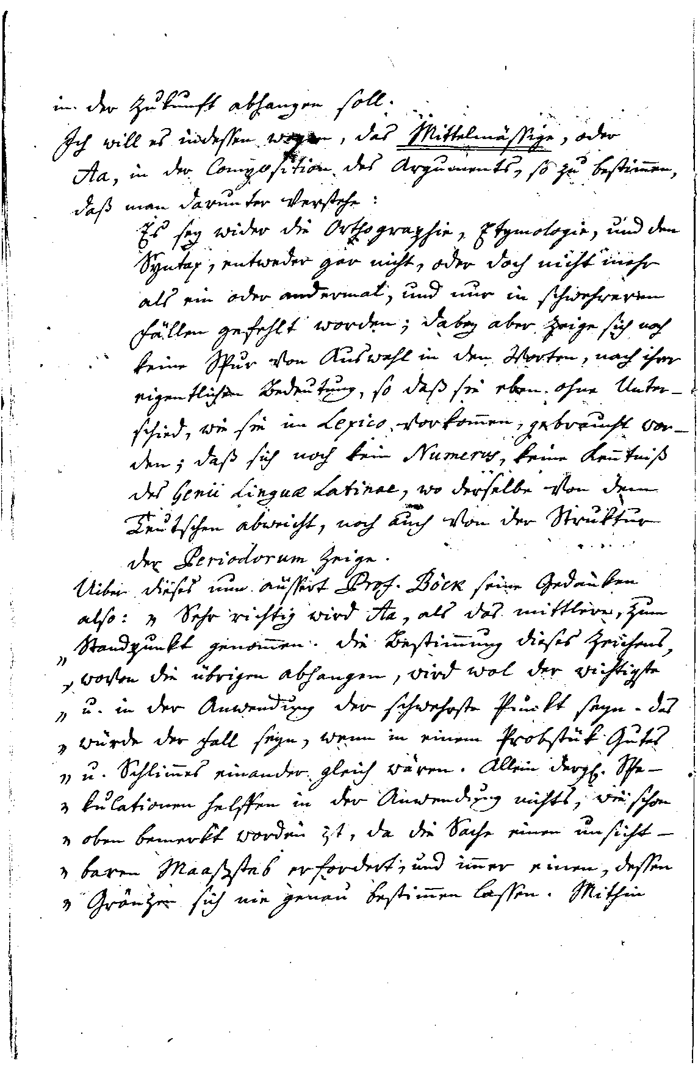 in der Zukunft abhangen soll.
Ich will es indessen wagen, das Mittelmässige, oder
Aa, in der Composition des Arguments, so zu bestimmen,
daß man darunter verstehe:
Es sey wider die Orthographie, Etymologie, und den
Syntax, entweder gar nicht, oder doch nicht mehr
als ein oder andermal, und nur in schwehreren
Fällen gefehlt worden; dabey aber zeige sich noch
keine Spur von Auswahl in den Worten, nach ihrer
eigentlichen Bedeutung, so daß sie eben ohne Unter-
schied, wie sie im Lexico vorkommen, gebraucht wor-
den; daß sich noch kein Numerus, keine Kenntniß
des Genii Linguae Latinae, wo derselbe von dem
Teutschen abweicht, noch auch von der Struktur
der Periodorum zeige.
Uiber dieses nun äussert Prof. Böck seine Gedanken
also: „ Sehr richtig wird Aa, als das mittlere, zum
„ Standpunkt genommen. die Bestimmung dieses Zeichens,
„ wovon die übrigen abhangen, wird wol der wichtigste
„ u. in der Anwendung der schwehrste Punkt seyn. das
„ würde der Fall seyn, wenn in einem Probstük Gutes
„ u. Schlimmes einander gleich wären. Allein dergl. Spe-
„ kulationen helffen in der Anwendung nichts, wie schon
„ oben bemerkt worden ist, da die Sache einen unsicht-
„ baren Maaßstab erfordert, und immer einen, dessen
„ Gränzen sich nie genau bestimmen lassen. Mithin